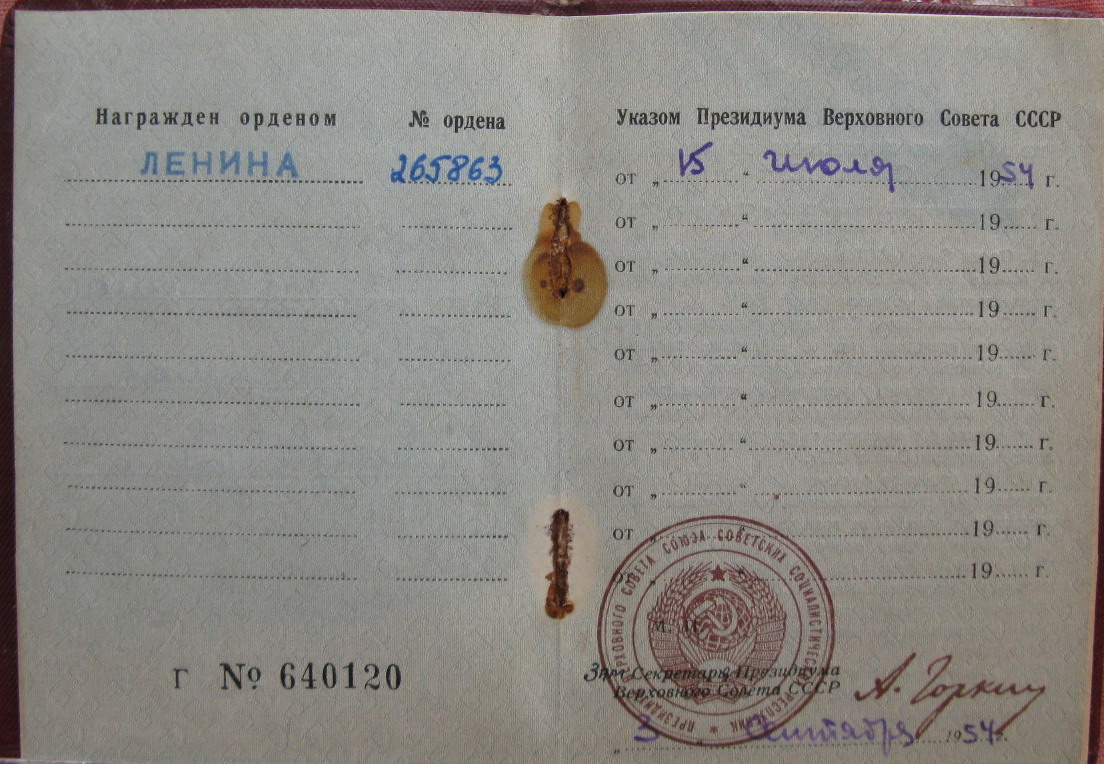 Награжден орденом № ордена Указом Президиума Верховного Совета СССР
ЛЕНИНА 265863 от „15“ июля 1954 г.
от „ “ 19 г.
от „ “ 19 г.
от „ “ 19 г.
от „ “ 19 г.
от „ “ 19 г.
от „ “ 19 г.
от „ “ 19 г.
от „ “ 19 г.
от „ “ 19 г.
М. П.
ПРЕЗИДИУМ ВЕРХОВНОГО СОВЕТА СОЮЗА СОВЕТСКИХ СОЦИАЛИСТИЧЕСКИХ РЕСПУБЛИК
Г № 640120
Зам Секретарь Президиума
Верховного Совета СССР А. Горкин
„3 сентября 1954 г.